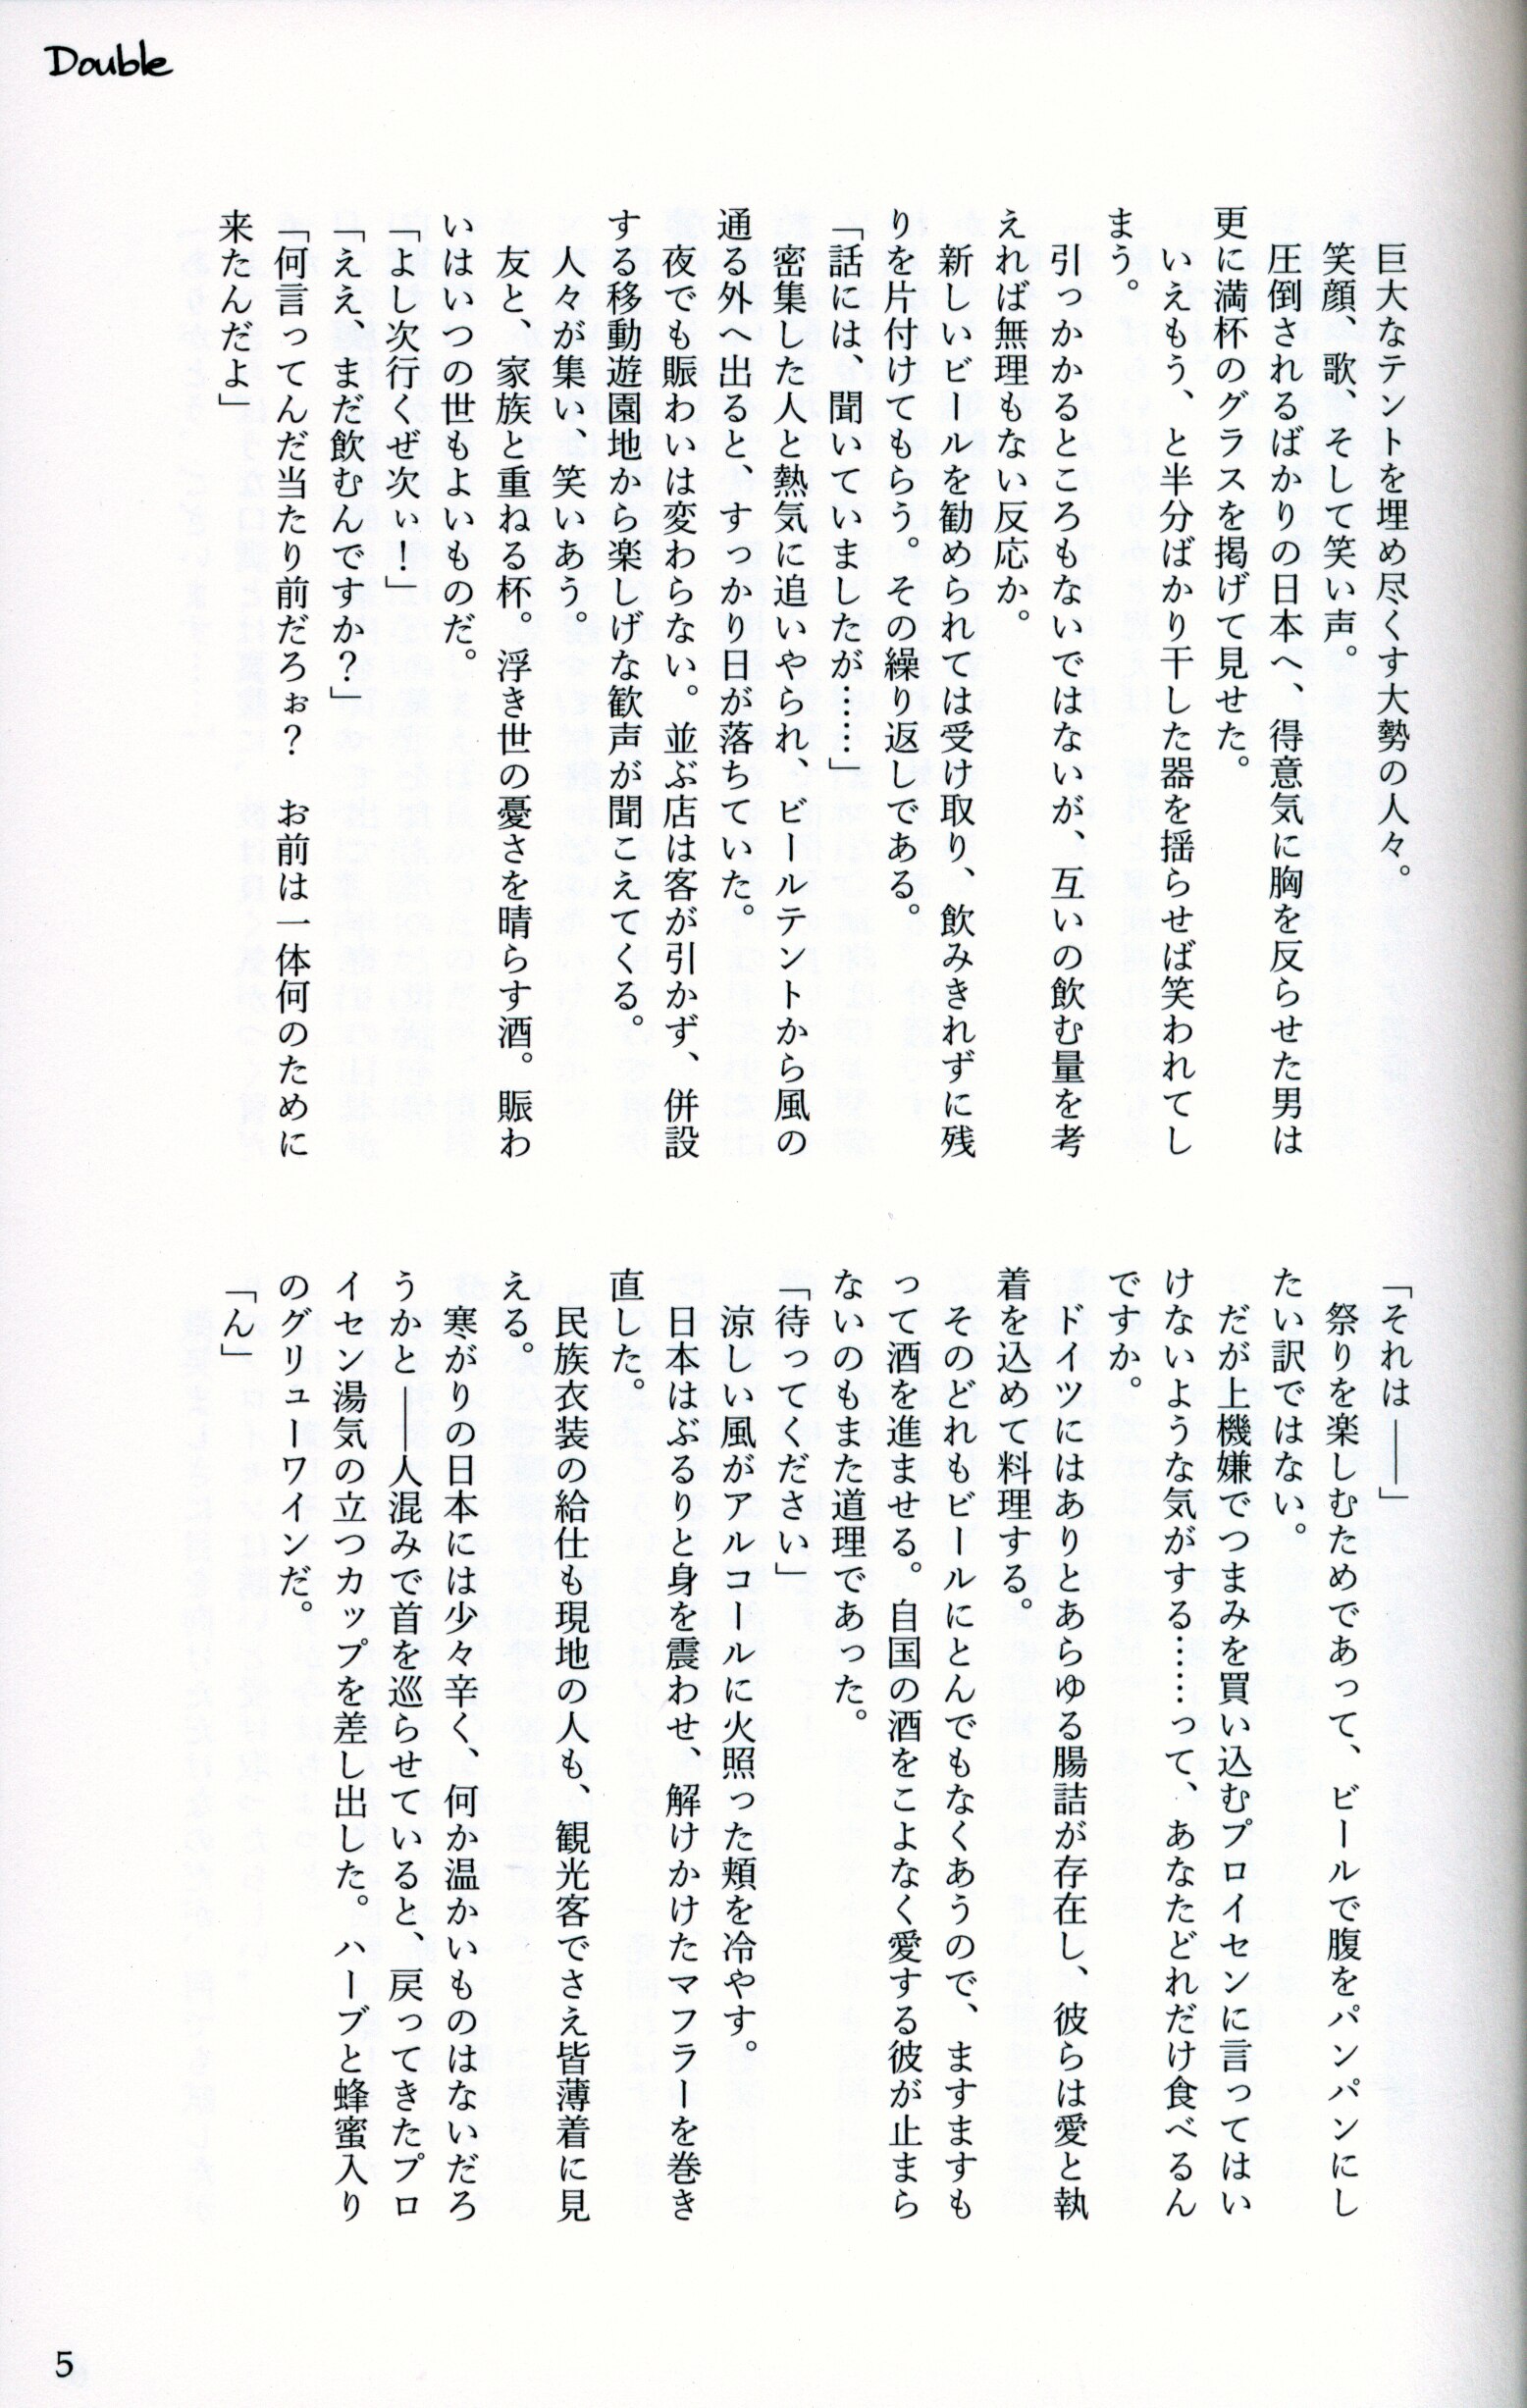 Double
巨大なテントを埋め尽くす大勢の人々。
笑顔、歌、そして笑い声。
圧倒されるばかりの日本へ、得意気に胸を反らせた男は
更に満杯のグラスを掲げて見せた。
いえもう、と半分ばかり干した器を揺らせば笑われてし
まう。
引っかかるところもないではないが、互いの飲む量を考
えれば無理もない反応か。
新しいビールを勧められては受け取り、飲みきれずに残
りを片付けてもらう。その繰り返しである。
「話には、聞いていましたが……」
密集した人と熱気に追いやられ、ビールテントから風の
通る外へ出ると、すっかり日が落ちていた。
夜でも賑わいは変わらない。並ぶ店は客が引かず、併設
する移動遊園地から楽しげな歓声が聞こえてくる。
人々が集い、笑いあう。
友と、家族と重ねる杯。浮き世の憂さを晴らす酒。賑わ
いはいつの世もよいものだ。
「よし次行くぜ次ぃ！」
「ええ、まだ飲むんですか？」
「何言ってんだ当たり前だろぉ？　お前は一体何のために
来たんだよ」
「それは――」
祭りを楽しむためであって、ビールで腹をパンパンにし
たい訳ではない。
だが上機嫌でつまみを買い込むプロイセンに言ってはい
けないような気がする……って、あなたどれだけ食べるん
ですか。
ドイツにはありとあらゆる腸詰が存在し、彼らは愛と執
着を込めて料理する。
そのどれもビールにとんでもなくあうので、ますますも
って酒を進ませる。自国の酒をこよなく愛する彼が止まら
ないのもまた道理であった。
「待ってください」
涼しい風がアルコールに火照った頬を冷やす。
日本はぶるりと身を震わせ、解けかけたマフラーを巻き
直した。
民族衣装の給仕も現地の人も、観光客でさえ皆薄着に見
える。
寒がりの日本には少々辛く、何か温かいものはないだろ
うかと――人混みで首を巡らせていると、戻ってきたプロ
イセン湯気の立つカップを差し出した。ハーブと蜂蜜入り
のグリューワインだ。
「ん」
5